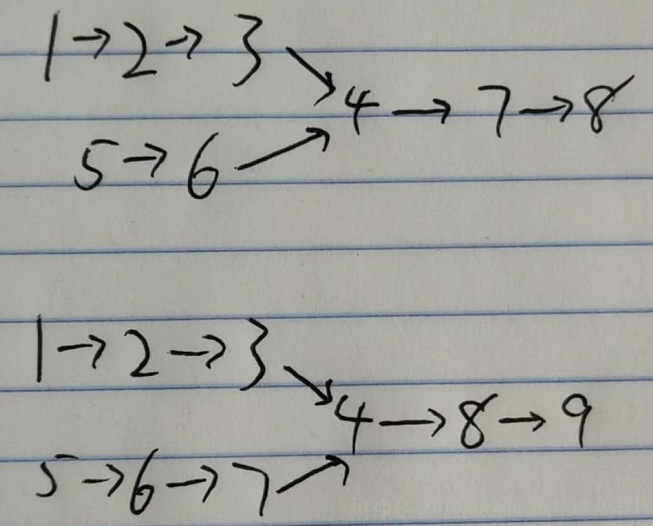 1→2→3
4→7→8
5→6
1→2→3
4→8→9
5→6→7